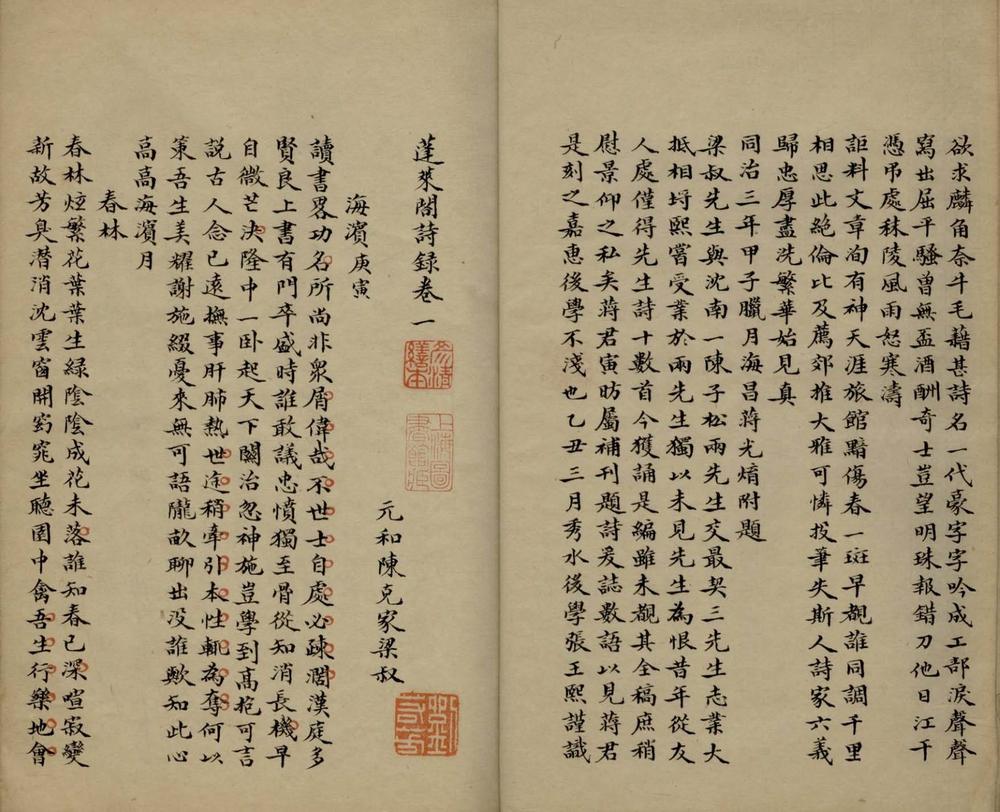 欲求麟角奈牛毛藉甚詩名一代豪字字吟成工部淚聲聲
寫出屈平騷曾無盃酒酬奇士豈望明珠報錯刀他日江干
憑弔處秣陵風雨怒寒濤
詎料文章洵有神天涯旅館黯傷春一斑早覩誰同調千里
相思此絕倫比及薦郊推大雅可憐投筆失斯人詩家六義
歸忠厚盡洗繁華始見真
同治三年甲子臘月海昌蔣光焴附題
梁叔先生與沈南一陳子松兩先生交最契三先生志業大
抵相埒熙嘗受業於兩先生獨以未見先生為恨昔年從友
人處僅得先生詩十數首今獲誦是編雖未覩其全稿庶稍
慰景仰之私矣蔣君寅昉屬補刊題詩爰誌數語以見蔣君
是刻之嘉惠後學不淺也乙丑三月秀水後學張王熙謹識
蓬萊閣詩録卷一
元和陳克家梁叔
海濱庚寅
讀書畧功名所尚非眾屑偉哉不世士自處必疎濶漢庭多
賢良上書有門卒盛時誰敢議忠憤獨至骨從知消長機早
自微芒決隆中一卧起天下闢治忽神施豈學到高抱可言
説古人念已遠撫事肝肺熱世途稍牽引本性輒為奪何以
策吾生美耀謝施綴憂來無可語隴畝聊出没誰歟知此心
高高海濱月
春林
春林炫繁花葉葉生緑陰陰成花未落誰知春已深喧寂變
新故芳臭潛消沈雲窗開窈窕坐聽園中禽吾生行樂地會
上海圖
書館藏